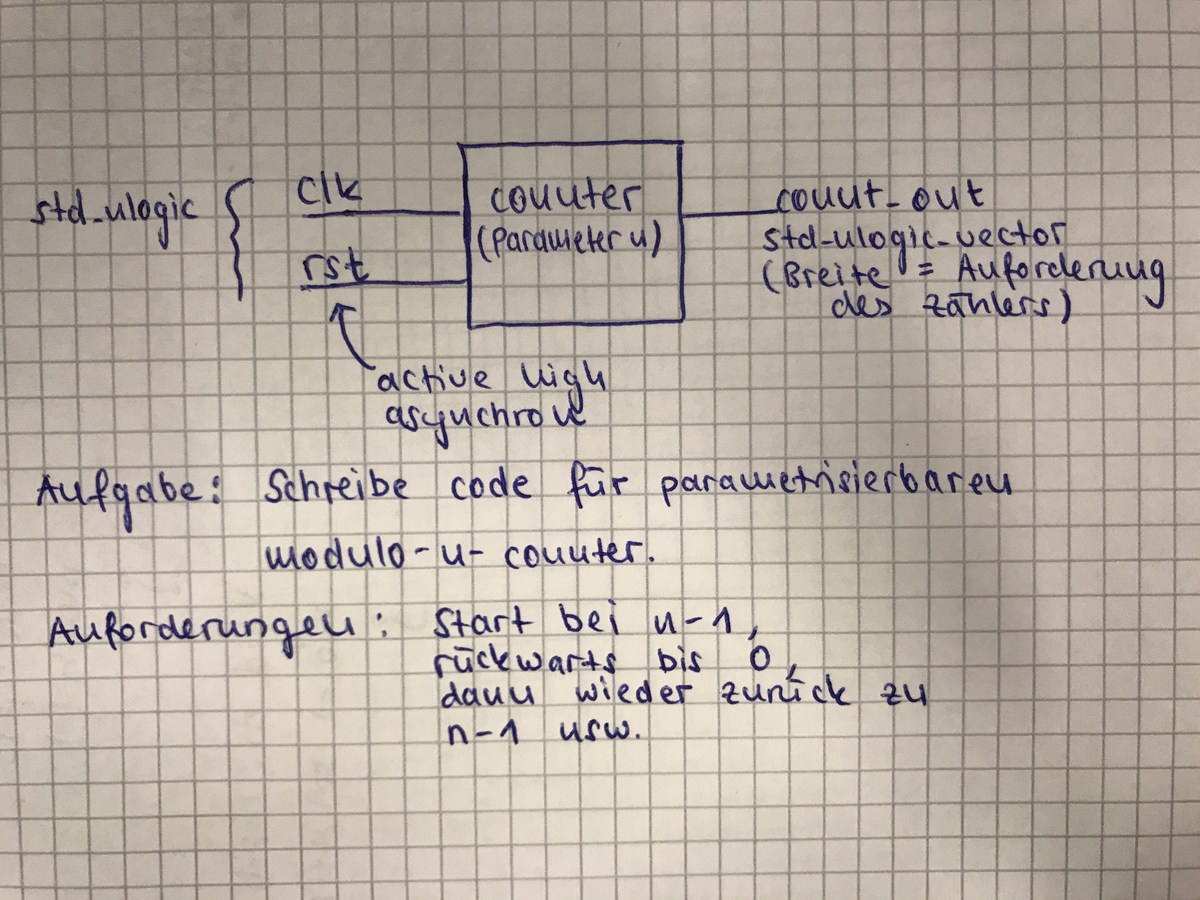 std_ulogic
clk
rst
counter
(Parameter n)
count_out
std_ulogic_vector
(Breite = Anforderung
des zählers)
active high
asynchron
Aufgabe: Schreibe code für parametrisierbaren
modulo-n-counter.
Anforderungen: Start bei n-1,
rückwärts bis 0,
dann wieder zurück zu
n-1 usw.